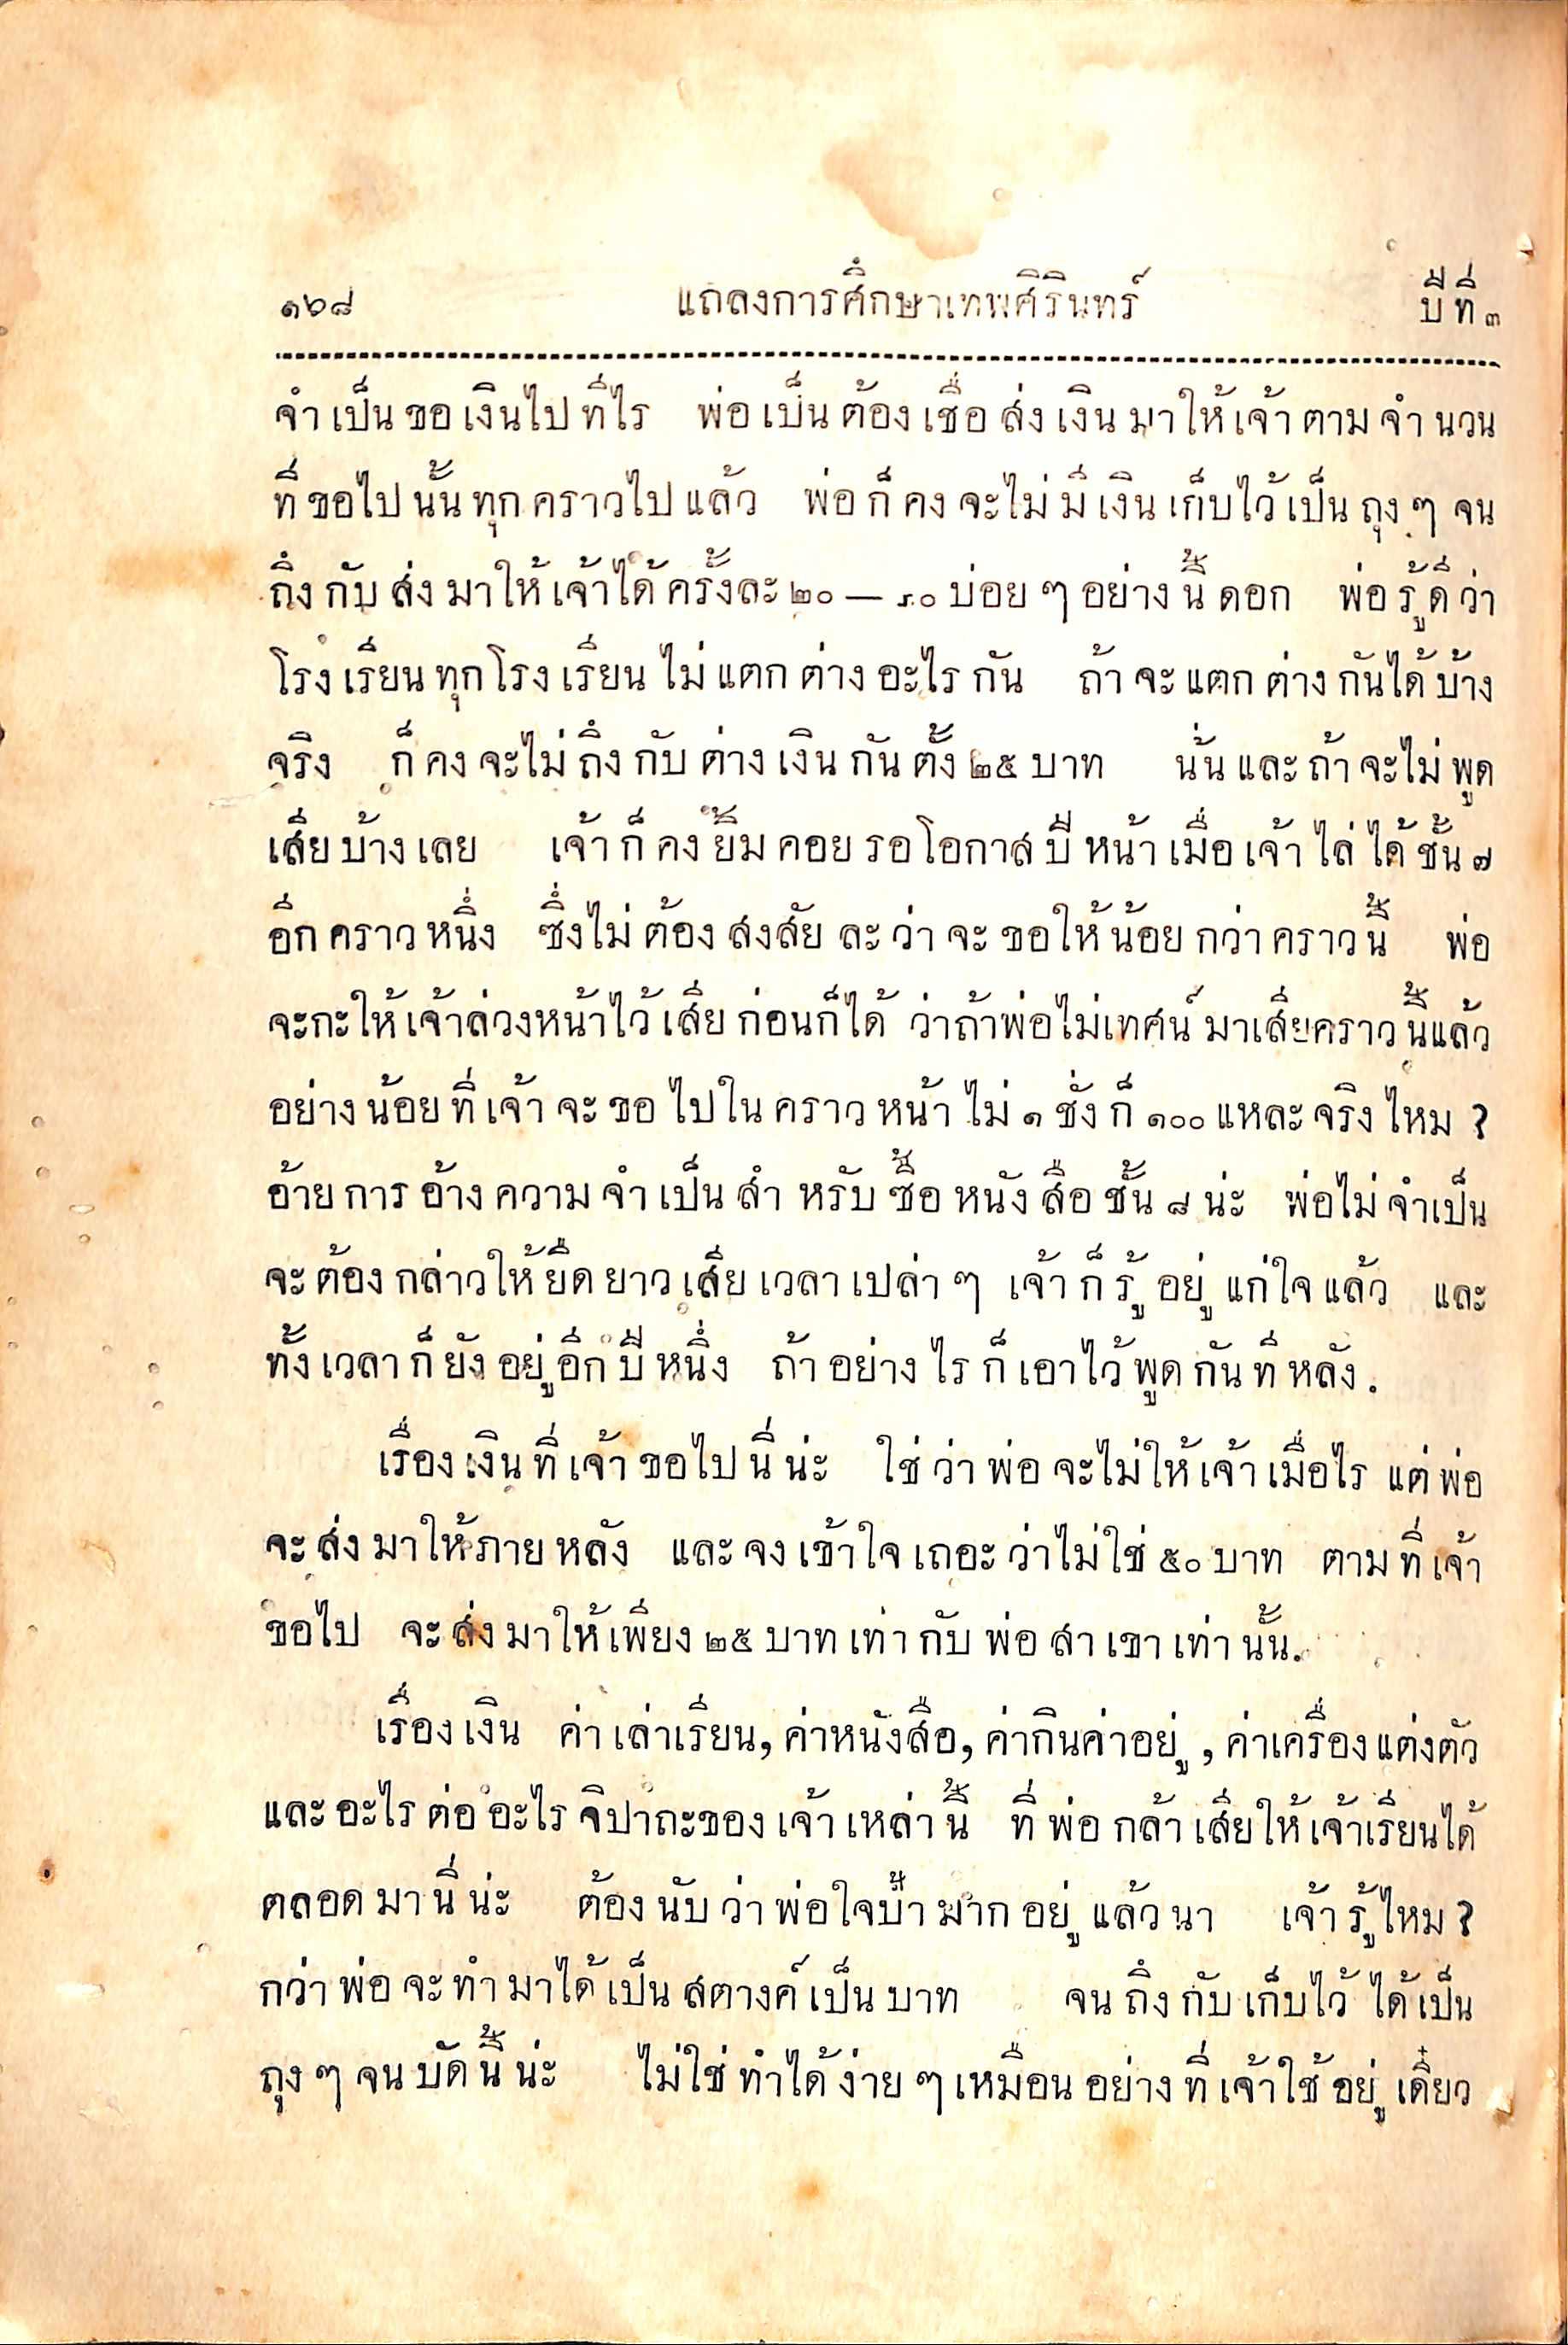 ๑๖๘ แถลงการศึกษาเทพศิรินทร์ ปีที่ ๓
จำเป็นขอเงินไปทีไร พ่อเป็นต้องเชื่อส่งเงินมาให้เจ้าตามจำนวน
ที่ขอไปนั้นทุกคราวไปแล้ว พ่อก็คงจะไม่มีเงินเก็บไว้เป็นถุงๆ จน
ถึงกับส่งมาให้เจ้าได้ครั้งละ ๒๐ — ๓๐ บ่อยๆ อย่างนี้ดอก พ่อรู้ดีว่า
โรงเรียนทุกโรงเรียนไม่แตกต่างอะไรกัน ถ้าจะแตกต่างกันได้บ้าง
จริง ก็คงจะไม่ถึงกับต่างเงินกันตั้ง ๒๕ บาท นั่นและถ้าจะไม่พูด
เสียบ้างเลย เจ้าก็คงยิ้มคอยรอโอกาสปีหน้าเมื่อเจ้าไล่ได้ชั้น ๗
อีกคราวหนึ่ง ซึ่งไม่ต้องสงสัยละว่าจะขอให้น้อยกว่าคราวนี้ พ่อ
จะกะให้เจ้าล่วงหน้าไว้เสียก่อนก็ได้ ว่าถ้าพ่อไม่เทศน์มาเสียคราวนี้แล้ว
อย่างน้อยที่เจ้าจะขอไปในคราวหน้าไม่ ๑ ชั่งก็ ๑๐๐ แหละจริงไหม ?
อ้ายการอ้างความจำเป็นสำหรับซื้อหนังสือชั้น ๘ น่ะ พ่อไม่จำเป็น
จะต้องกล่าวให้ยืดยาวเสียเวลาเปล่าๆ เจ้าก็รู้อยู่แก่ใจแล้ว และ
ทั้งเวลาก็ยังอยู่อีกปีหนึ่ง ถ้าอย่างไรก็เอาไว้พูดกันทีหลัง.
เรื่องเงินที่เจ้าขอไปนี่น่ะ ใช่ว่าพ่อจะไม่ให้เจ้าเมื่อไร แต่พ่อ
จะส่งมาให้ภายหลัง และจงเข้าใจเถอะว่าไม่ใช่ ๕๐ บาท ตามที่เจ้า
ขอไป จะส่งมาให้เพียง ๒๕ บาทเท่ากับพ่อสาเขาเท่านั้น.
เรื่องเงิน ค่าเล่าเรียน, ค่าหนังสือ, ค่ากินค่าอยู่, ค่าเครื่องแต่งตัว
และอะไรต่ออะไรจิปาถะของเจ้าเหล่านี้ ที่พ่อกล้าเสียให้เจ้าเรียนได้
ตลอดมานี่น่ะ ต้องนับว่าพ่อใจป้ำมากอยู่แล้วนา เจ้ารู้ไหม ?
กว่าพ่อจะทำมาได้เป็นสตางค์เป็นบาท จนถึงกับเก็บไว้ได้เป็น
ถุงๆ จนบัดนี้น่ะ ไม่ใช่ทำได้ง่ายๆ เหมือนอย่างที่เจ้าใช้อยู่เดี๋ยว